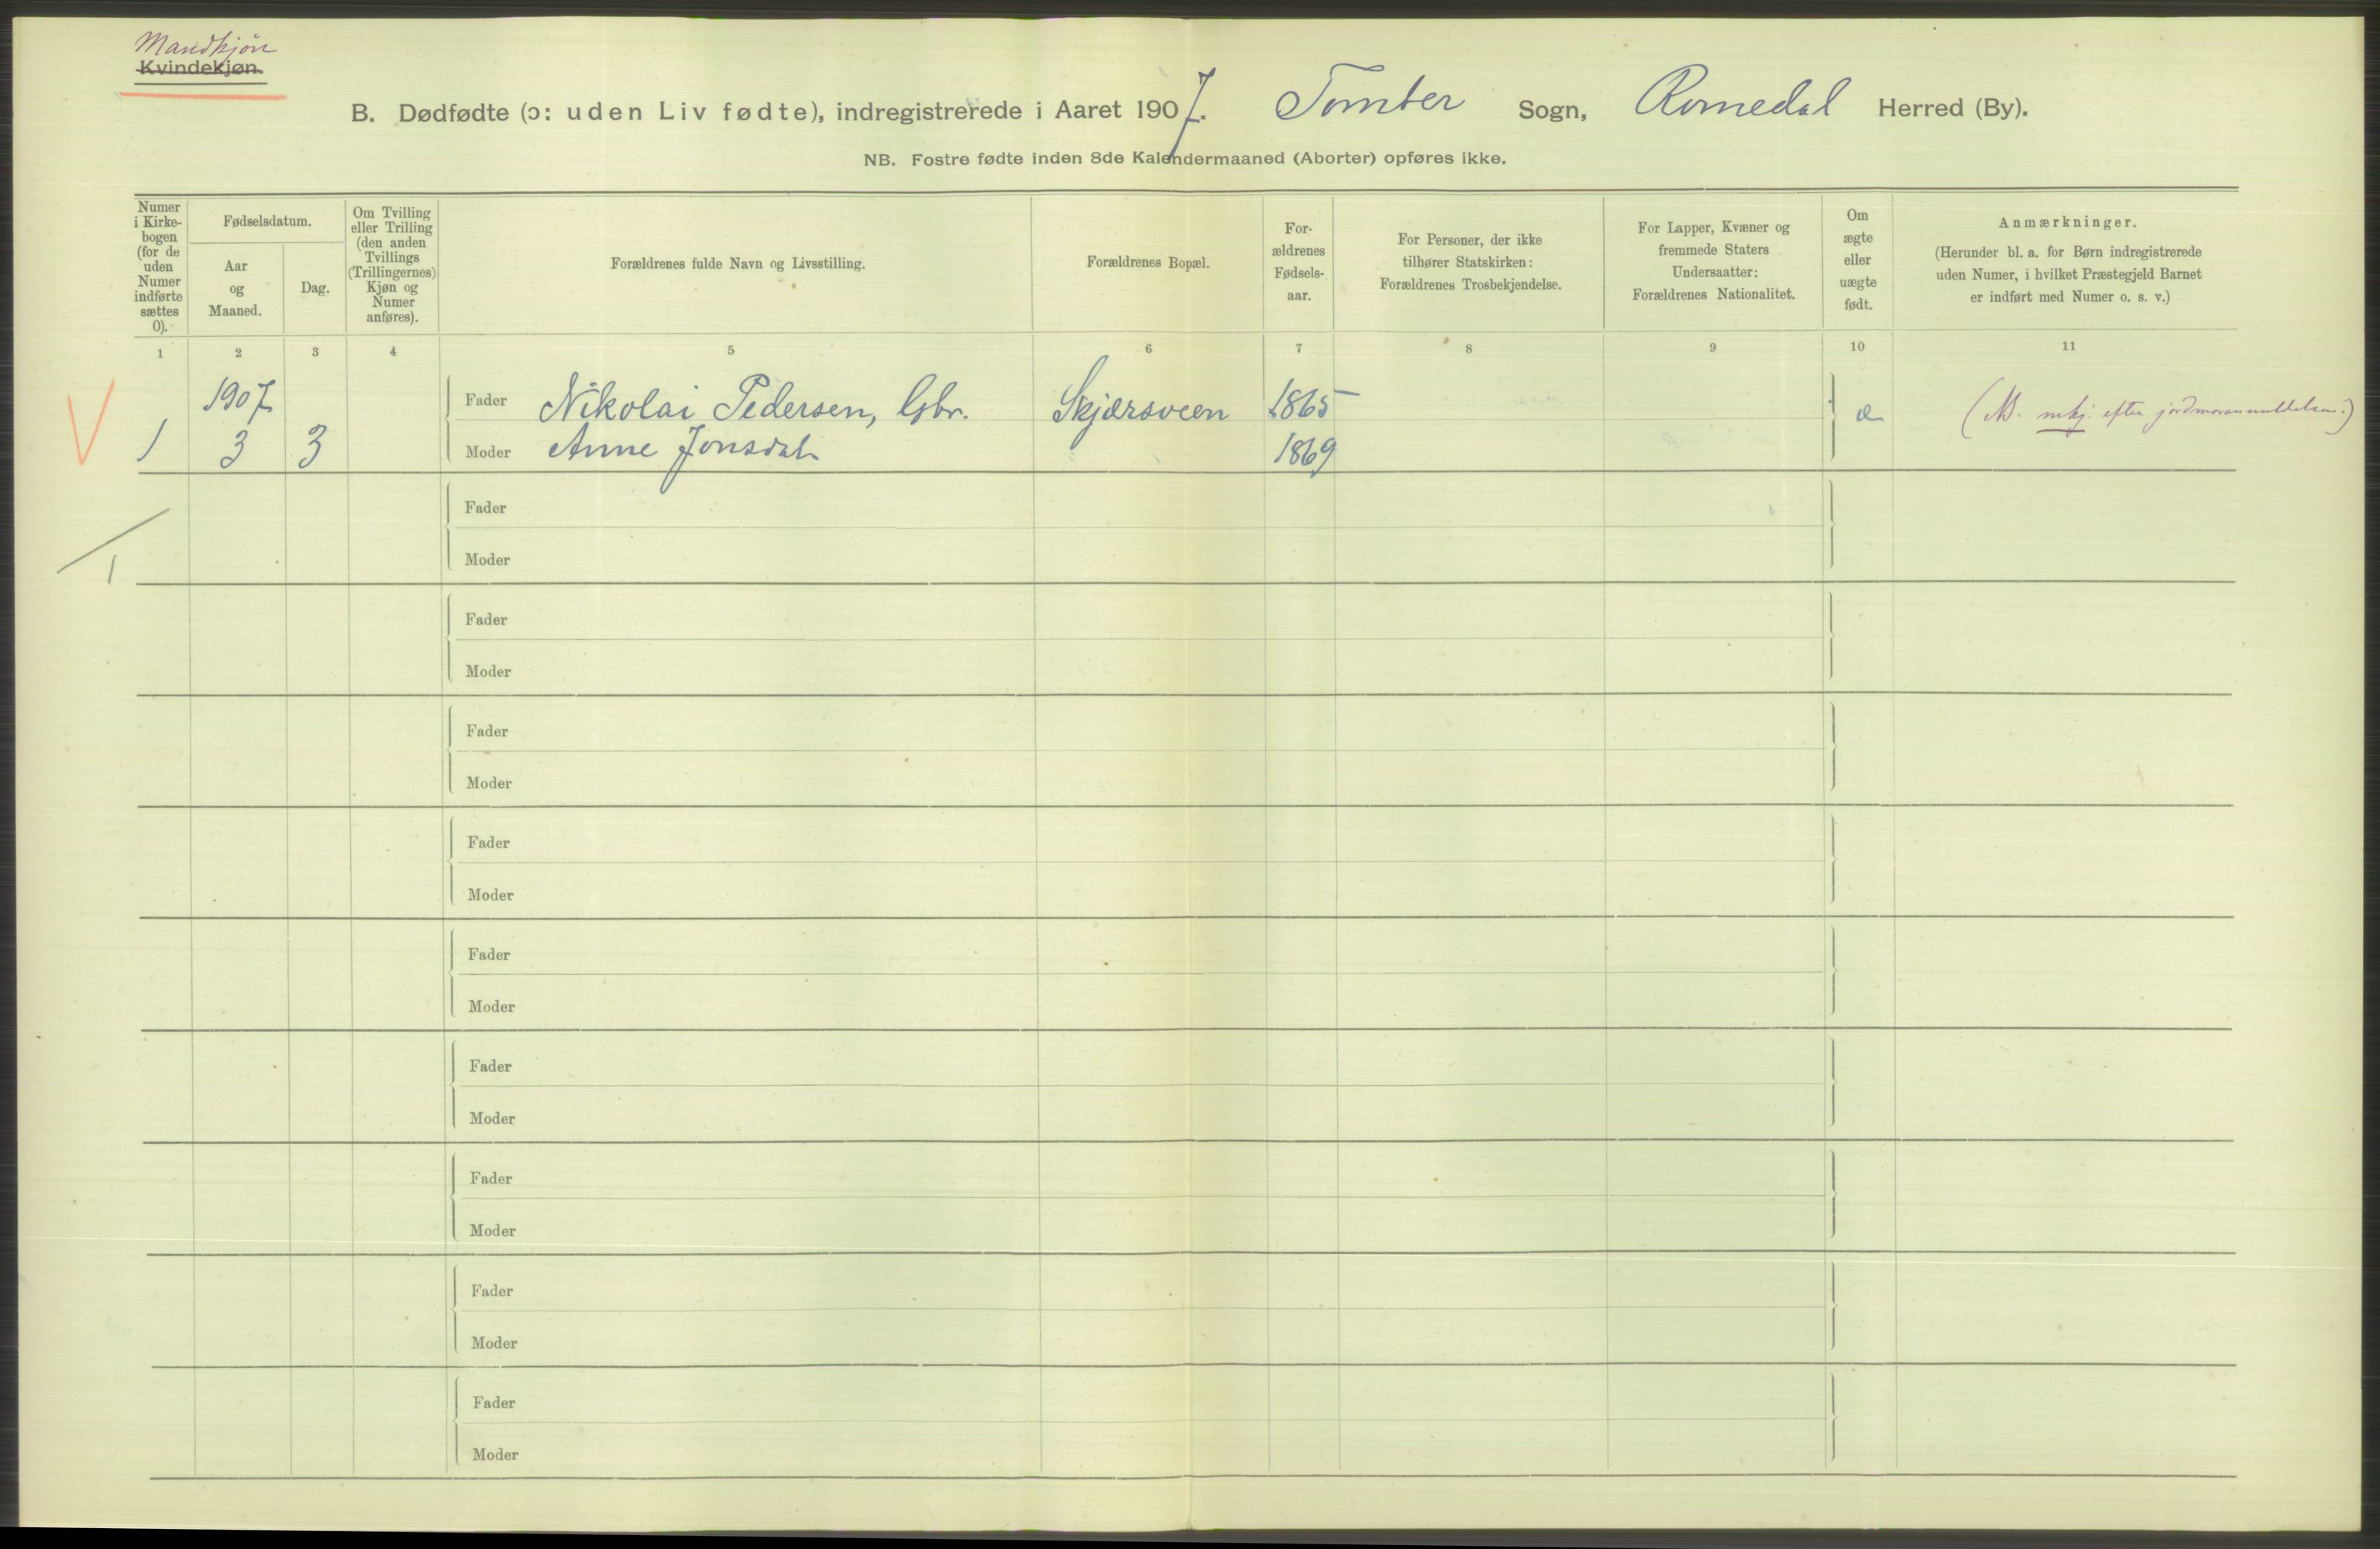 Mandkjøn
Kvindekjøn.
B. Dødfødte (ɔ: uden Liv fødte), indregistrerede i Aaret 1907. Tomter Sogn, Romedal Herred (By).
NB. Fostre fødte inden 8de Kalendermaaned (Aborter) opføres ikke.
Numer
i Kirke-
bogen
(for de
uden
Numer
indførte
sættes
0).
Fødselsdatum.
Aar
og
Maaned.
Dag.
Om Tvilling
eller Trilling
(den anden
Tvillings
(Trillingernes)
Kjøn og
Numer
anføres).
Forældrenes fulde Navn og Livsstilling.
Forældrenes Bopæl.
For-
ældrenes
Fødsels-
aar.
For Personer, der ikke
tilhører Statskirken:
Forældrenes Trosbekjendelse.
For Lapper, Kvæner og
fremmede Staters
Undersaatter:
Forældrenes Nationalitet.
Om
ægte
eller
uægte
født.
Anmærkninger.
(Herunder bl. a. for Børn indregistrerede
uden Numer, i hvilket Præstegjeld Barnet
er indført med Numer o. s. v.)
1 2 3 4 5 6 7 8 9 10 11
1907 Fader Nikolai Pedersen, Gbr. Skjærsveen 1865 æ (NB. mkj. efter jordmoranmeldelsen.)
1 3 3 Moder Anne Jonsdat. 1869
Fader
1 Moder
Fader
Moder
Fader
Moder
Fader
Moder
Fader
Moder
Fader
Moder
Fader
Moder
Fader
Moder
Fader
Moder